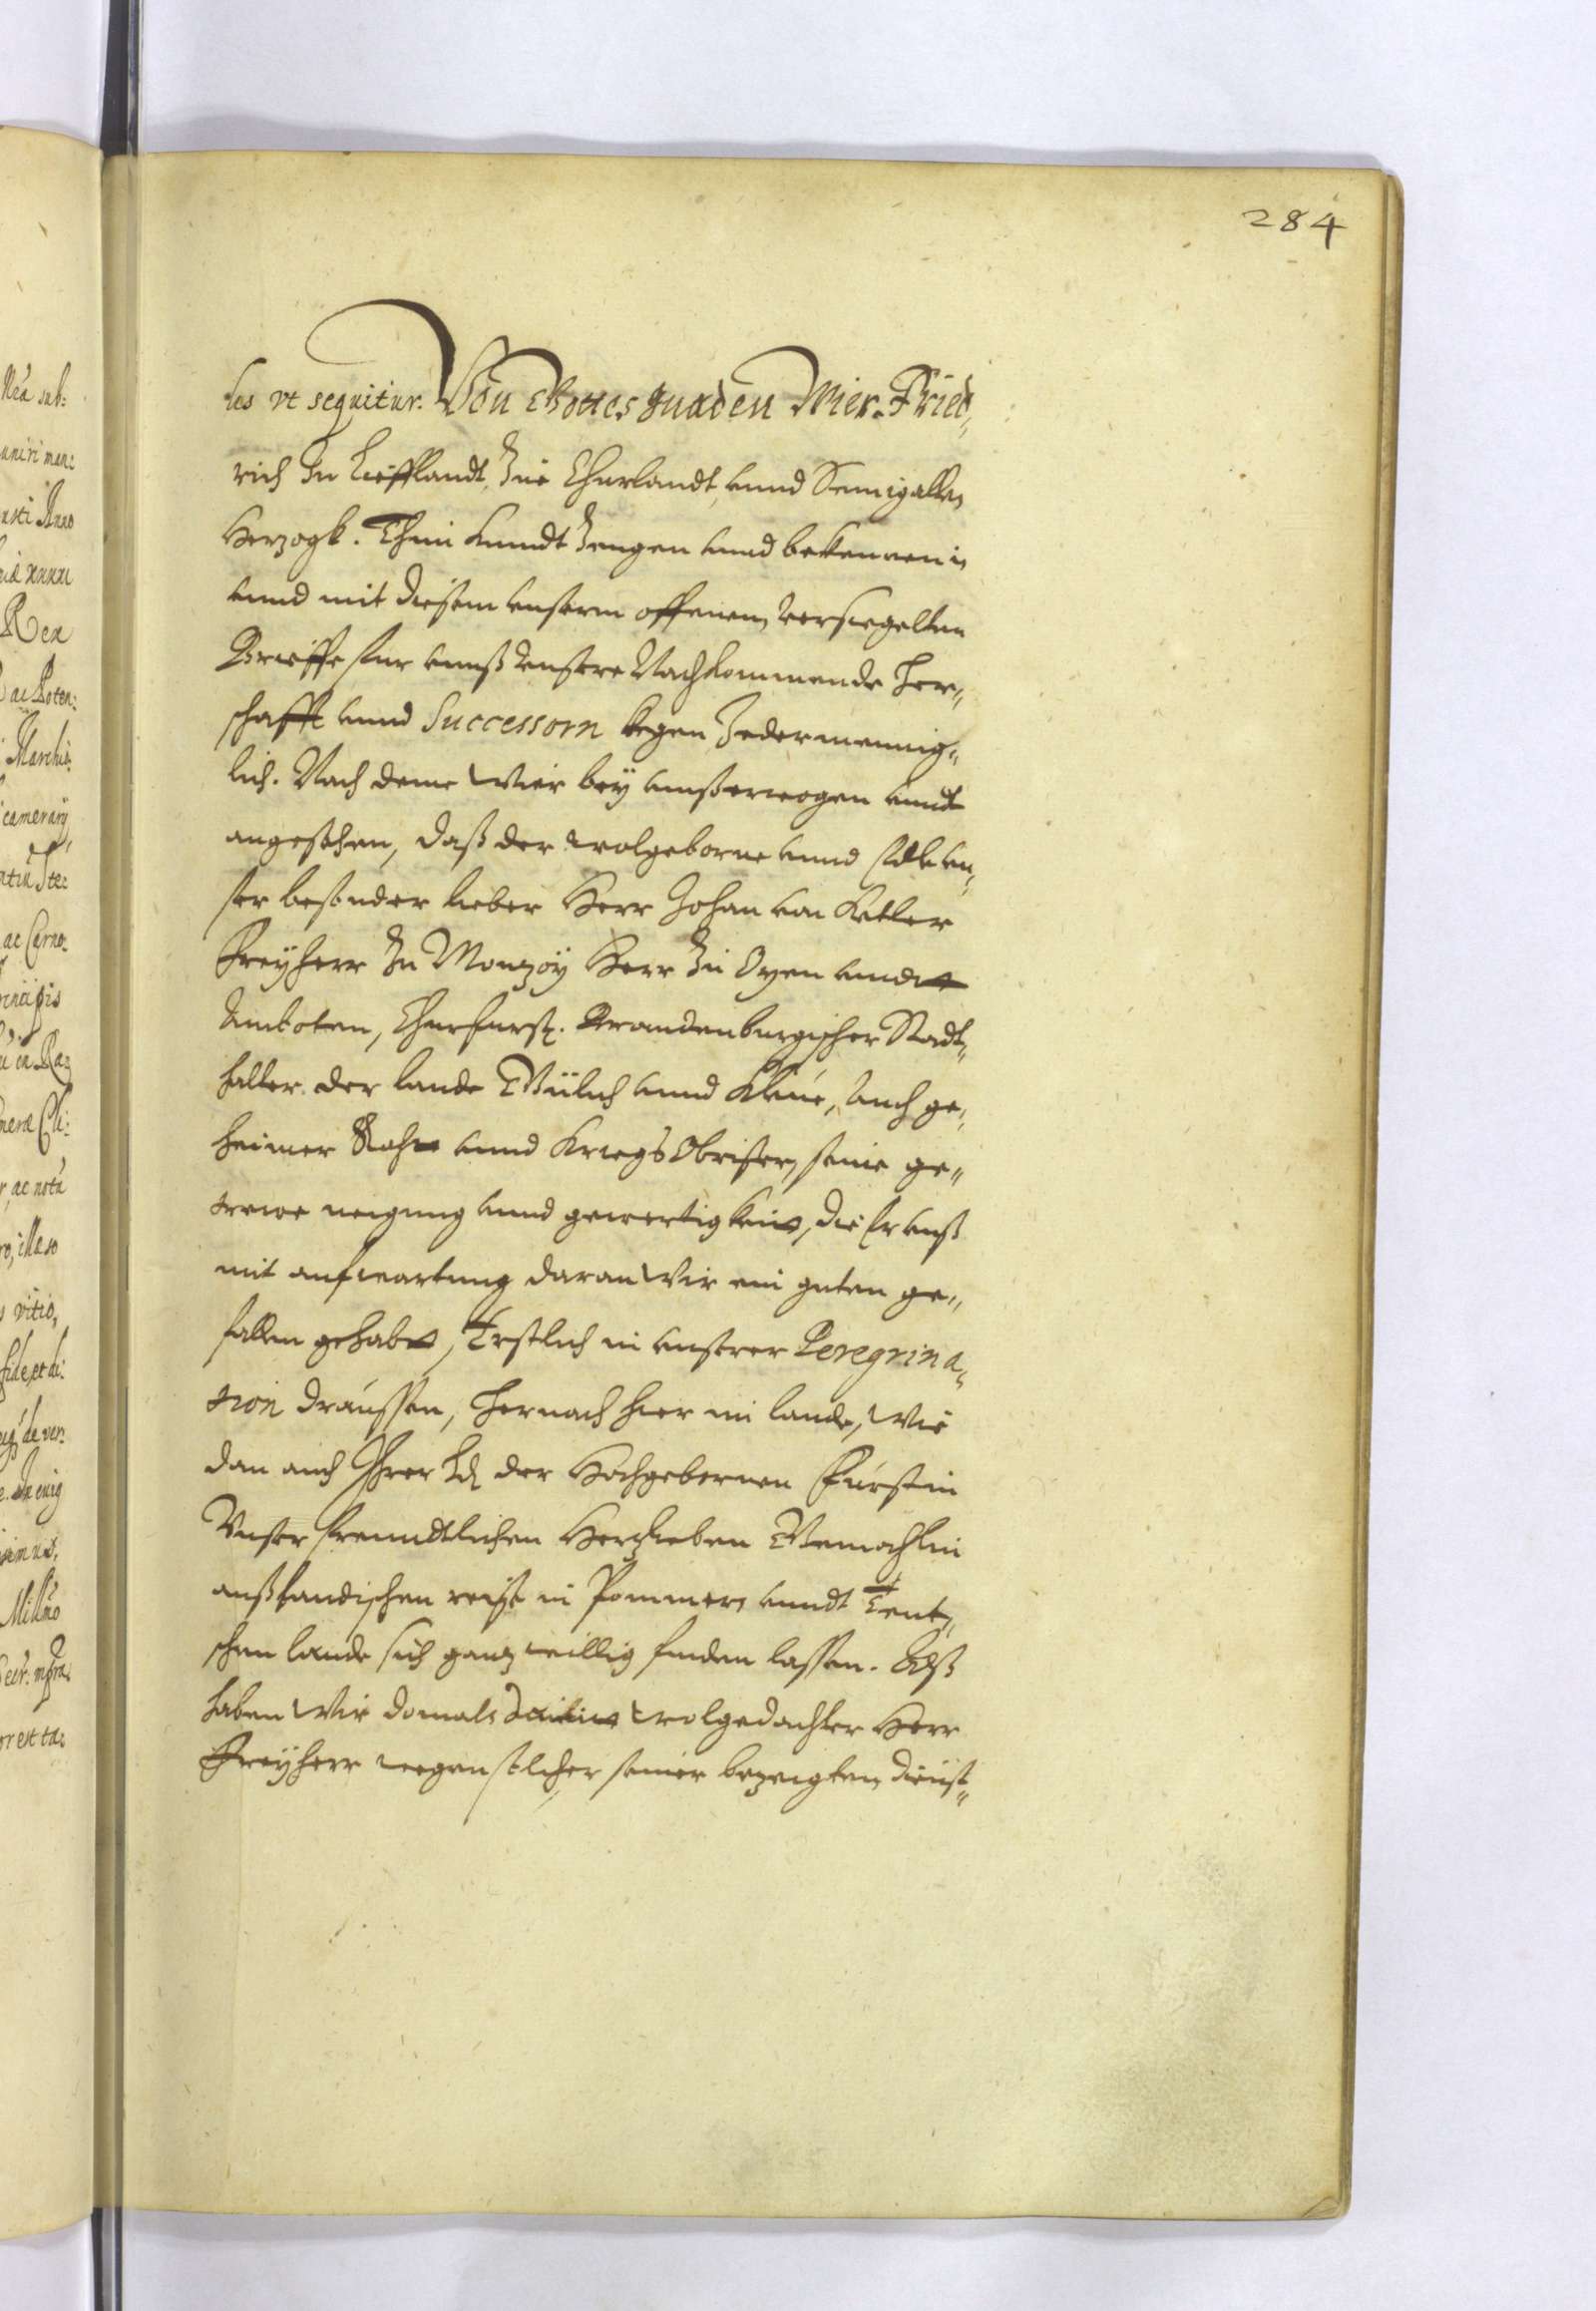 284
les vt sequitur. Von Gottes gnaden Wier Fried„
rich In Liefflandt, Zue Churlandt, unnd Semigallen
Herzogk. Thun kundt Zeugen unnd bekennen in
unnd mit diesem unserm offenem versiegelten
Brieffe fur unnß unsere Nachkommende Her„
schafft unnd Successorn kegen Jedermennig„
lich. Nach deme Wier bey unß erwogen unndt
angesehen, daß der wolgeborne unnd Edle un„
ser besonder lieber Herr Johan von Ketler
Freyherr Zu Monzoy Herr Zu Oyen unndt
Amboten, Churfurstl. Brandenburgischer Stadt„
halter der lande Gülich unnd Kleue, Auch ge„
heimer Raht unnd Kriegs Obrister, seine ge„
trewe neigung unnd gewertigkeit, die Er unß
mit aufwartung daran Wir ein guten ge„
fallen gehabt, Erstlich in unserer Peregrina„
tion draussen, hernach hier im lande, Wie
dan auch Ihrer Ld der Hochgebornen Fürstin
Unser freundtlichen Herzlieben Gemahlin
außlandischen reise in Pommern unndt Teut„
schen lande sich ganz willig finden lassen. Alß
haben Wir domals wolgedachter Herr
Freyherr wegen solcher seiner bezeigten dienst„
Nea sub:
Anno
Rex
ac Poten:
Marchi:
camerarÿ
ac Carno:
ac nota
vitio,
fide, et di:
de ver:
or est ta: